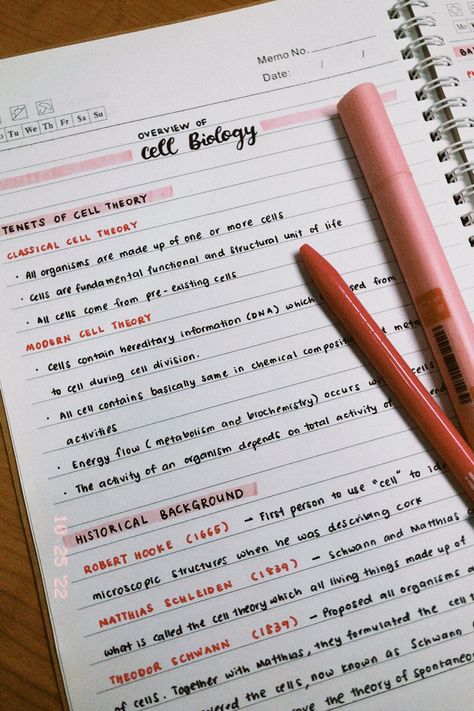 Memo No.
Date: / /
Tu We Th Fr Sa Su
Mo
OVERVIEW OF
Cell Biology
TENETS OF CELL THEORY
CLASSICAL CELL THEORY
· All organisms are made up of one or more cells
· Cells are fundamental functional and structural unit of life
· All cells come from pre-existing cells
MODERN CELL THEORY
· Cells contain hereditary information (DNA) which sed from
to cell during cell division.
· All cell contains basically same in chemical composition meta
activities
· Energy flow ( metabolism and biochemistry) occurs cells
· The activity of an organism depends on total activity of
HISTORICAL BACKGROUND
ROBERT HOOKE (1665) – First person to use "cell" to
microscopic structures when he was describing cork
MATTHIAS SCHLEIDEN (1839) – Schwann and Matthias
what is called the cell theory which all living things made up of
THEODOR SCHWANN (1839) – Proposed all organisms a
of cells. Together with Matthias, they formulated the cell
the cells, now known as Schwann
the theory of spontaneou
10 25 '22